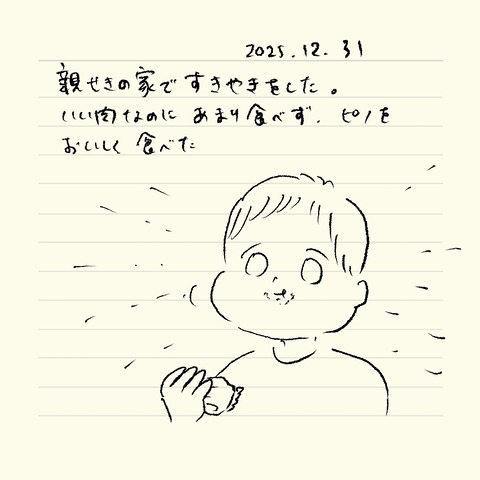 2025.12.31
親せきの家ですきやきをした。
いい肉なのに あまり食べず、ピノを
おいしく 食べた